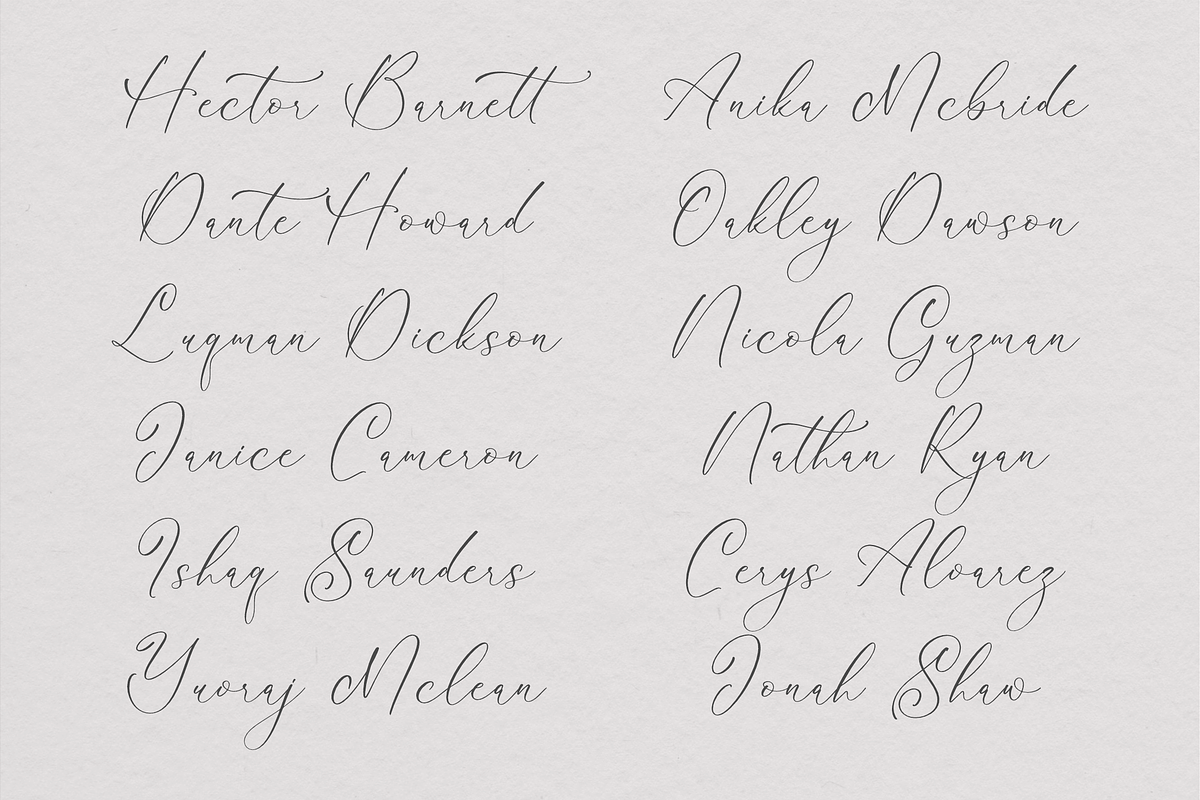 Hector Barnett
Anika Mcbride
Dante Howard
Oakley Dawson
Luqman Dickson
Nicola Guzman
Janice Cameron
Nathan Ryan
Ishaq Saunders
Cerys Alvarez
Yuvraj Mclean
Jonah Shaw